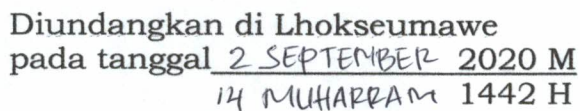 Diundangkan di Lhokseumawe
pada tanggal 2 SEPTEMBER 2020 M
14 MUHARRAM 1442 H